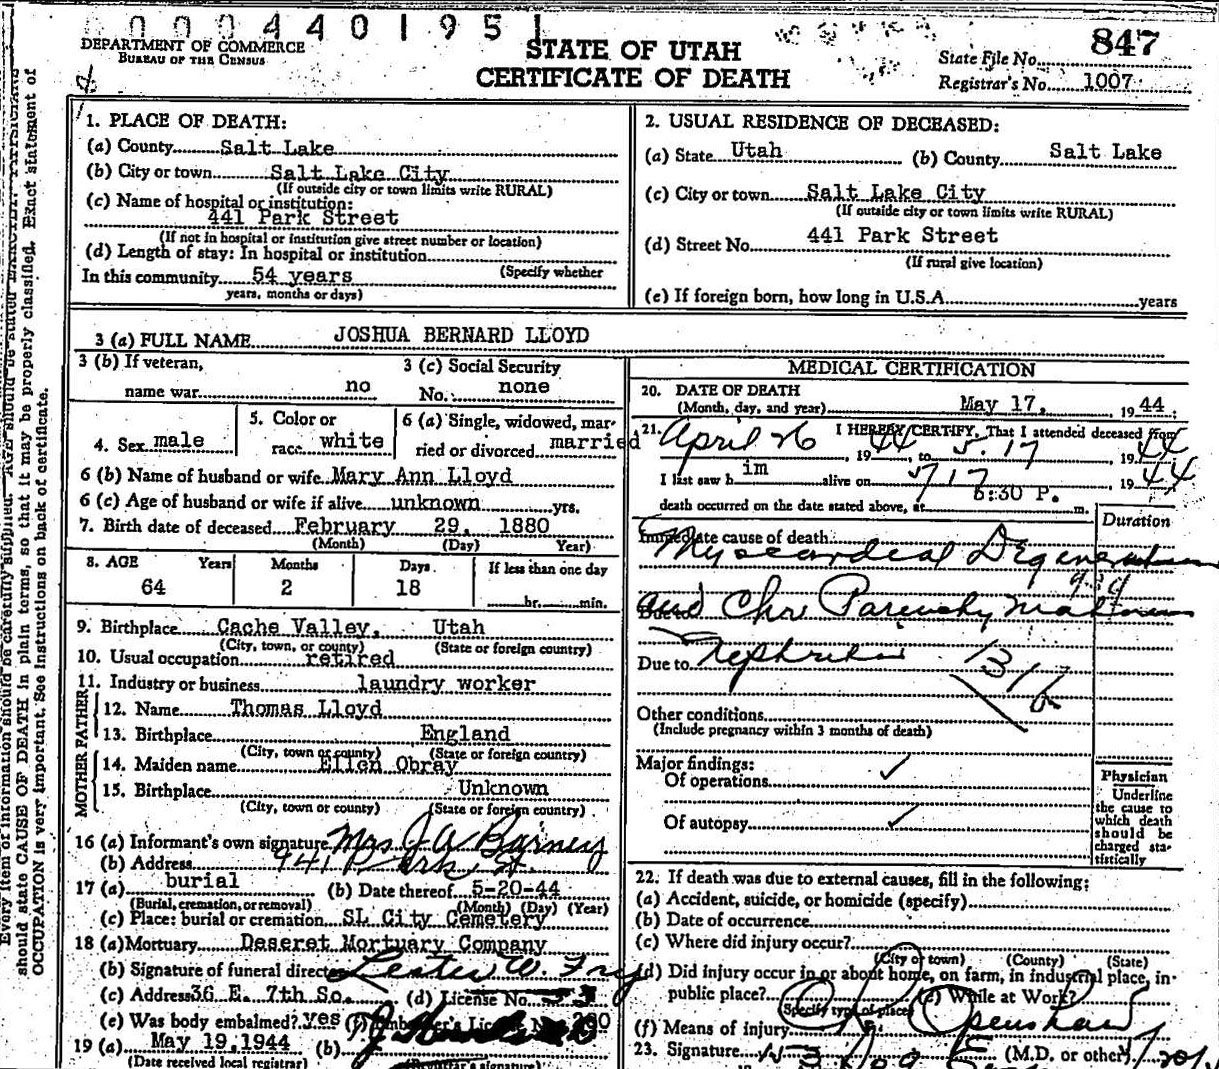 00004401951
DEPARTMENT OF COMMERCE
BUREAU OF THE CENSUS
STATE OF UTAH
CERTIFICATE OF DEATH
State File No. 847
Registrar's No. 1007
1. PLACE OF DEATH:
(a) County Salt Lake
(b) City or town Salt Lake City
(If outside city or town limits write RURAL)
(c) Name of hospital or institution:
441 Park Street
(If not in hospital or institution give street number or location)
(d) Length of stay: In hospital or institution
In this community 54 years (Specify whether
years, months or days)
2. USUAL RESIDENCE OF DECEASED:
(a) State Utah (b) County Salt Lake
(c) City or town Salt Lake City
(If outside city or town limits write RURAL)
(d) Street No. 441 Park Street
(If rural give location)
(e) If foreign born, how long in U.S.A. years
3 (a) FULL NAME JOSHUA BERNARD LLOYD
3 (b) If veteran,
name war no
3 (c) Social Security
No. none
4. Sex male
5. Color or
race white
6 (a) Single, widowed, mar-
ried or divorced married
6 (b) Name of husband or wife Mary Ann Lloyd
6 (c) Age of husband or wife if alive unknown yrs.
7. Birth date of deceased February 29, 1880
(Month) (Day) Year)
8. AGE Years Months Days If less than one day
64 2 18 hr. min.
9. Birthplace Cache Valley, Utah
(City, town, or county) (State or foreign country)
10. Usual occupation retired
11. Industry or business laundry worker
FATHER
12. Name Thomas Lloyd
13. Birthplace England
(City, town or county) (State or foreign country)
MOTHER
14. Maiden name Ellen Obray
15. Birthplace Unknown
(City, town or county) (State or foreign country)
16 (a) Informant's own signature Mrs J A Barney
(b) Address 441 Park St.
17 (a) burial (b) Date thereof 5-20-44
(Burial, cremation, or removal) (Month) (Day) (Year)
(c) Place: burial or cremation SL City Cemetery
18 (a) Mortuary Deseret Mortuary Company
(b) Signature of funeral director Lester W. Fry
(c) Address 36 E. 7th So. (d) License No.
(e) Was body embalmed? yes (f) Embalmer's License No. 200
19 (a) May 19, 1944 (b)
(Date received local registrar) (Registrar's signature)
MEDICAL CERTIFICATION
20. DATE OF DEATH
(Month, day, and year) May 17, 1944
21. I HEREBY CERTIFY, That I attended deceased from
April 26, 1944 to 5.17, 1944
I last saw h im alive on 5/17, 1944
death occurred on the date stated above, at 6:30 P. m.
Duration
Immediate cause of death
Myocardial Degeneration
Due to and Chr Parenchymatous
Due to Nephritis 131b
Other conditions
(Include pregnancy within 3 months of death)
Major findings:
Of operations ✓
Of autopsy ✓
Physician
Underline
the cause to
which death
should be
charged sta-
tistically
22. If death was due to external causes, fill in the following:
(a) Accident, suicide, or homicide (specify)
(b) Date of occurrence
(c) Where did injury occur?
(City or town) (County) (State)
(d) Did injury occur in or about home, on farm, in industrial place, in
public place? (e) While at Work?
(Specify type of place)
(f) Means of injury
23. Signature (M.D. or other)
should state CAUSE OF DEATH in plain terms, so that it may be properly classified. Exact statement of
OCCUPATION is very important. See instructions on back of certificate.